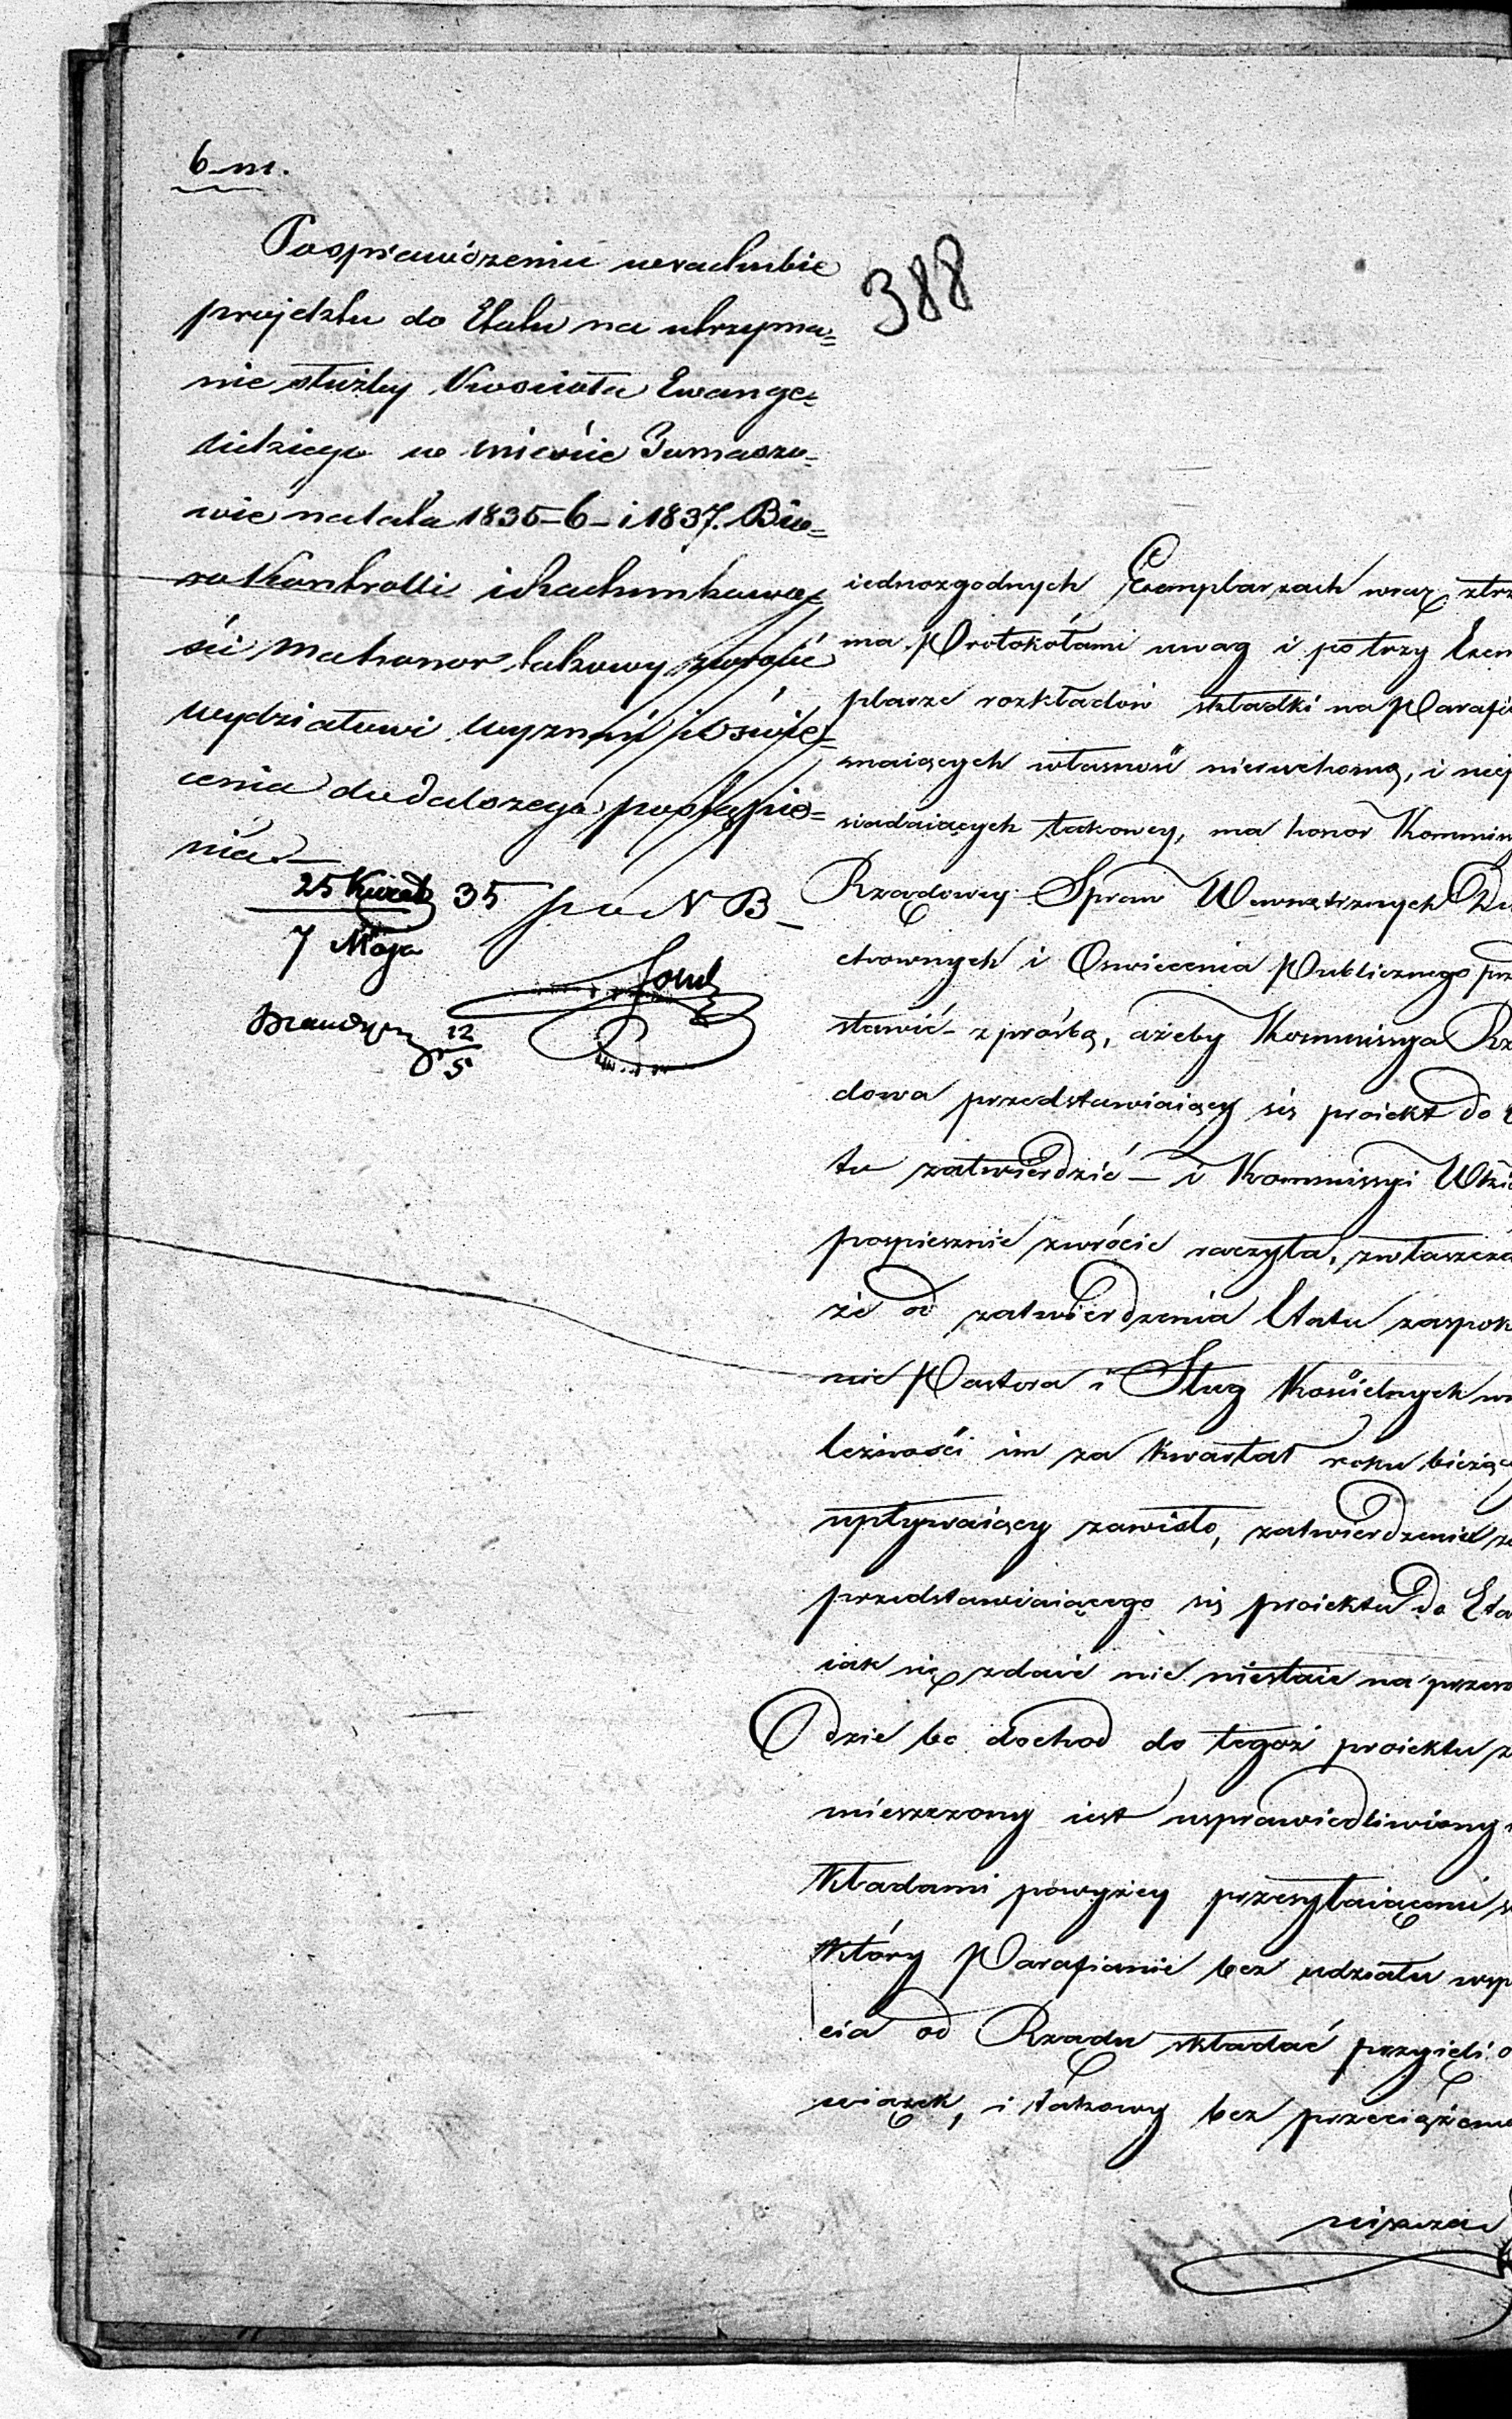 6 m.
Po sprawdzeniu w rachubie
projektu do Etatu na utrzyma=
nie służby Kościoła Ewange=
lickiego w mieście Tomaszo=
wie na lata 1835-6- i 1837. Biu=
ro Kontrolli i Rachunkowo=
ści ma honor takowy zwrócić
Wydziałowi Wyznań i Oświe=
cenia do dalszego postąpie=
nia. —
25 Kwiet 35
7 Maja
12
5
388
iednozgodnych Exemplarzach wraz ztrz
ma Protokółami uwag i po trzy Exem
plarze rozkładów składki na Parafia
maiących własność nieruchomą, i niep
siadaiących takowey, ma honor Kommiss
Rządowey Spraw Wewnętrznych Du
chownych i Oswiecenia Publicznego prz
stawić z prośbą, ażeby Kommissya Rz
dowa przedstawiaiący się proiekt do E
tu zatwierdzić — i Kommissyi Wo
pospiesznie zwrócić raczyła, zwłaszcza
że od zatwierdzenia Etatu zaspok
nie Pastora i Sług Kościelnych w
leżności im za kwartał roku bieżąc
upływaiący zawisło, zatwierdzenie z
przedstawiaiącego się proiektu do Eta
iak się zdaie nic niestaie na przesz
Odzie bo dochod do tegoż proiektu z
mieszczony iest usprawiedliwiony
kładami powyżey przesyłaiącemi s
który Parafianie bez udziału wsp
cia od Rządu składać przyięli o
wiązek, i takowy bez przeciążenia
uiszczać